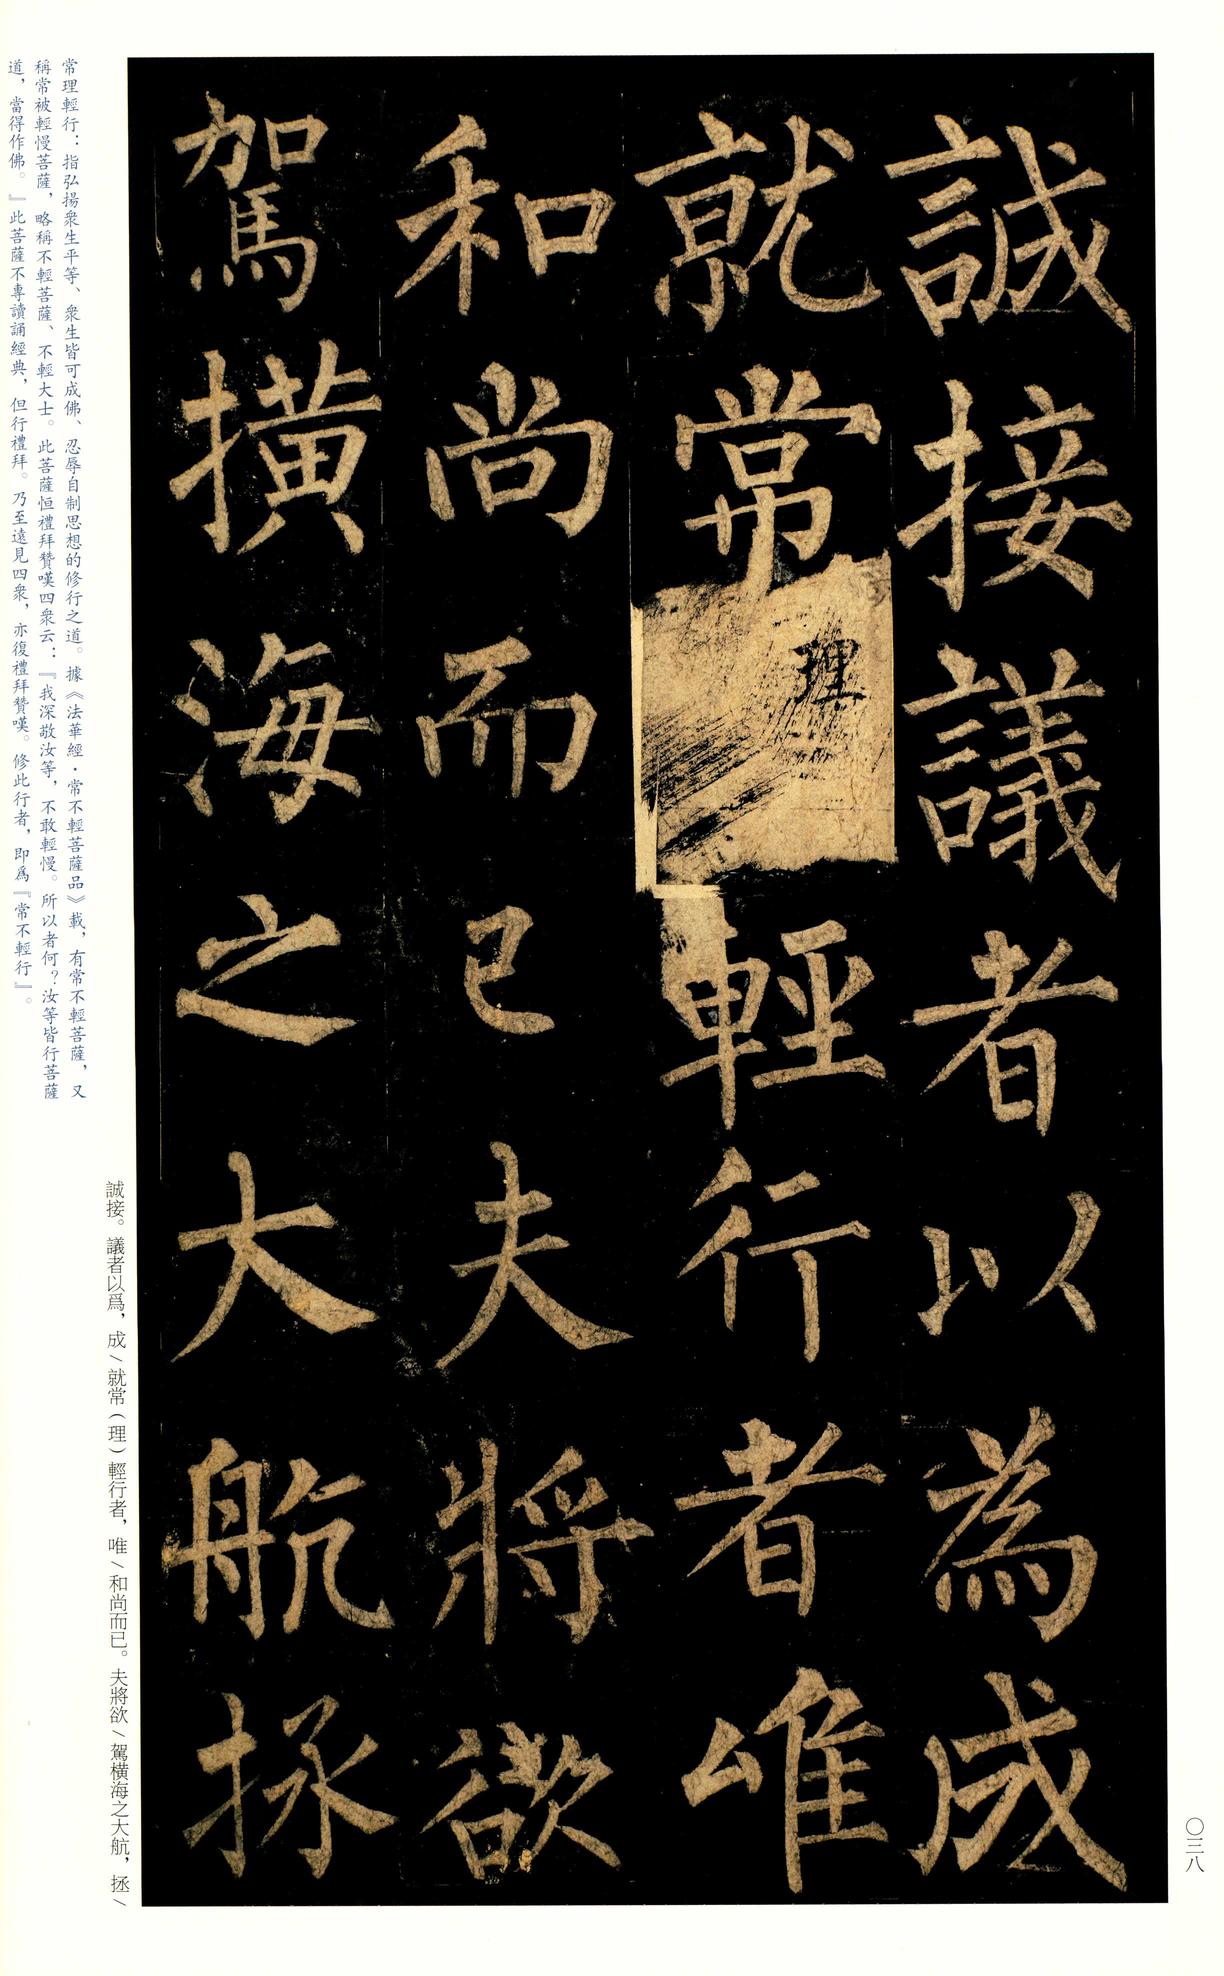 誠接議者以為成
就常理輕行者唯
和尚而已夫將欲
駕撗海之大航拯
誠接。議者以爲，成╲就常（理）輕行者，唯╲和尚而已。夫將欲╲駕橫海之大航，拯╲
常理輕行：指弘揚衆生平等、衆生皆可成佛、忍辱自制思想的修行之道。據《法華經·常不輕菩薩品》載，有常不輕菩薩，又
稱常被輕慢菩薩，略稱不輕菩薩、不輕大士。此菩薩恒禮拜贊嘆四衆云：『我深敬汝等，不敢輕慢。所以者何？汝等皆行菩薩
道，當得作佛。』此菩薩不專讀誦經典，但行禮拜。乃至遠見四衆，亦復禮拜贊嘆。修此行者，即爲『常不輕行』。
〇三八